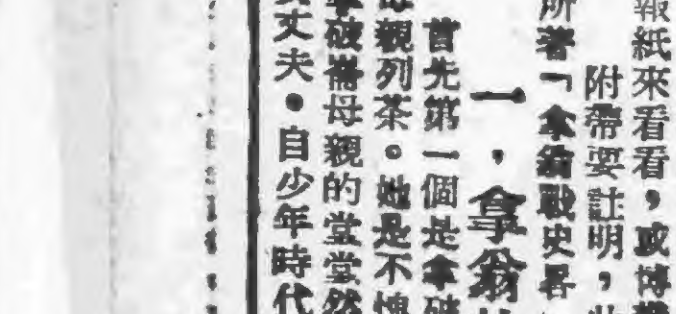 報紙來看看，或博
附帶要註明，
所著「拿翁戰史畧
一，拿翁
首先第一個是拿破
母親列茶。她是不愧
拿破崙母親的堂堂然
丈夫。自少年時代